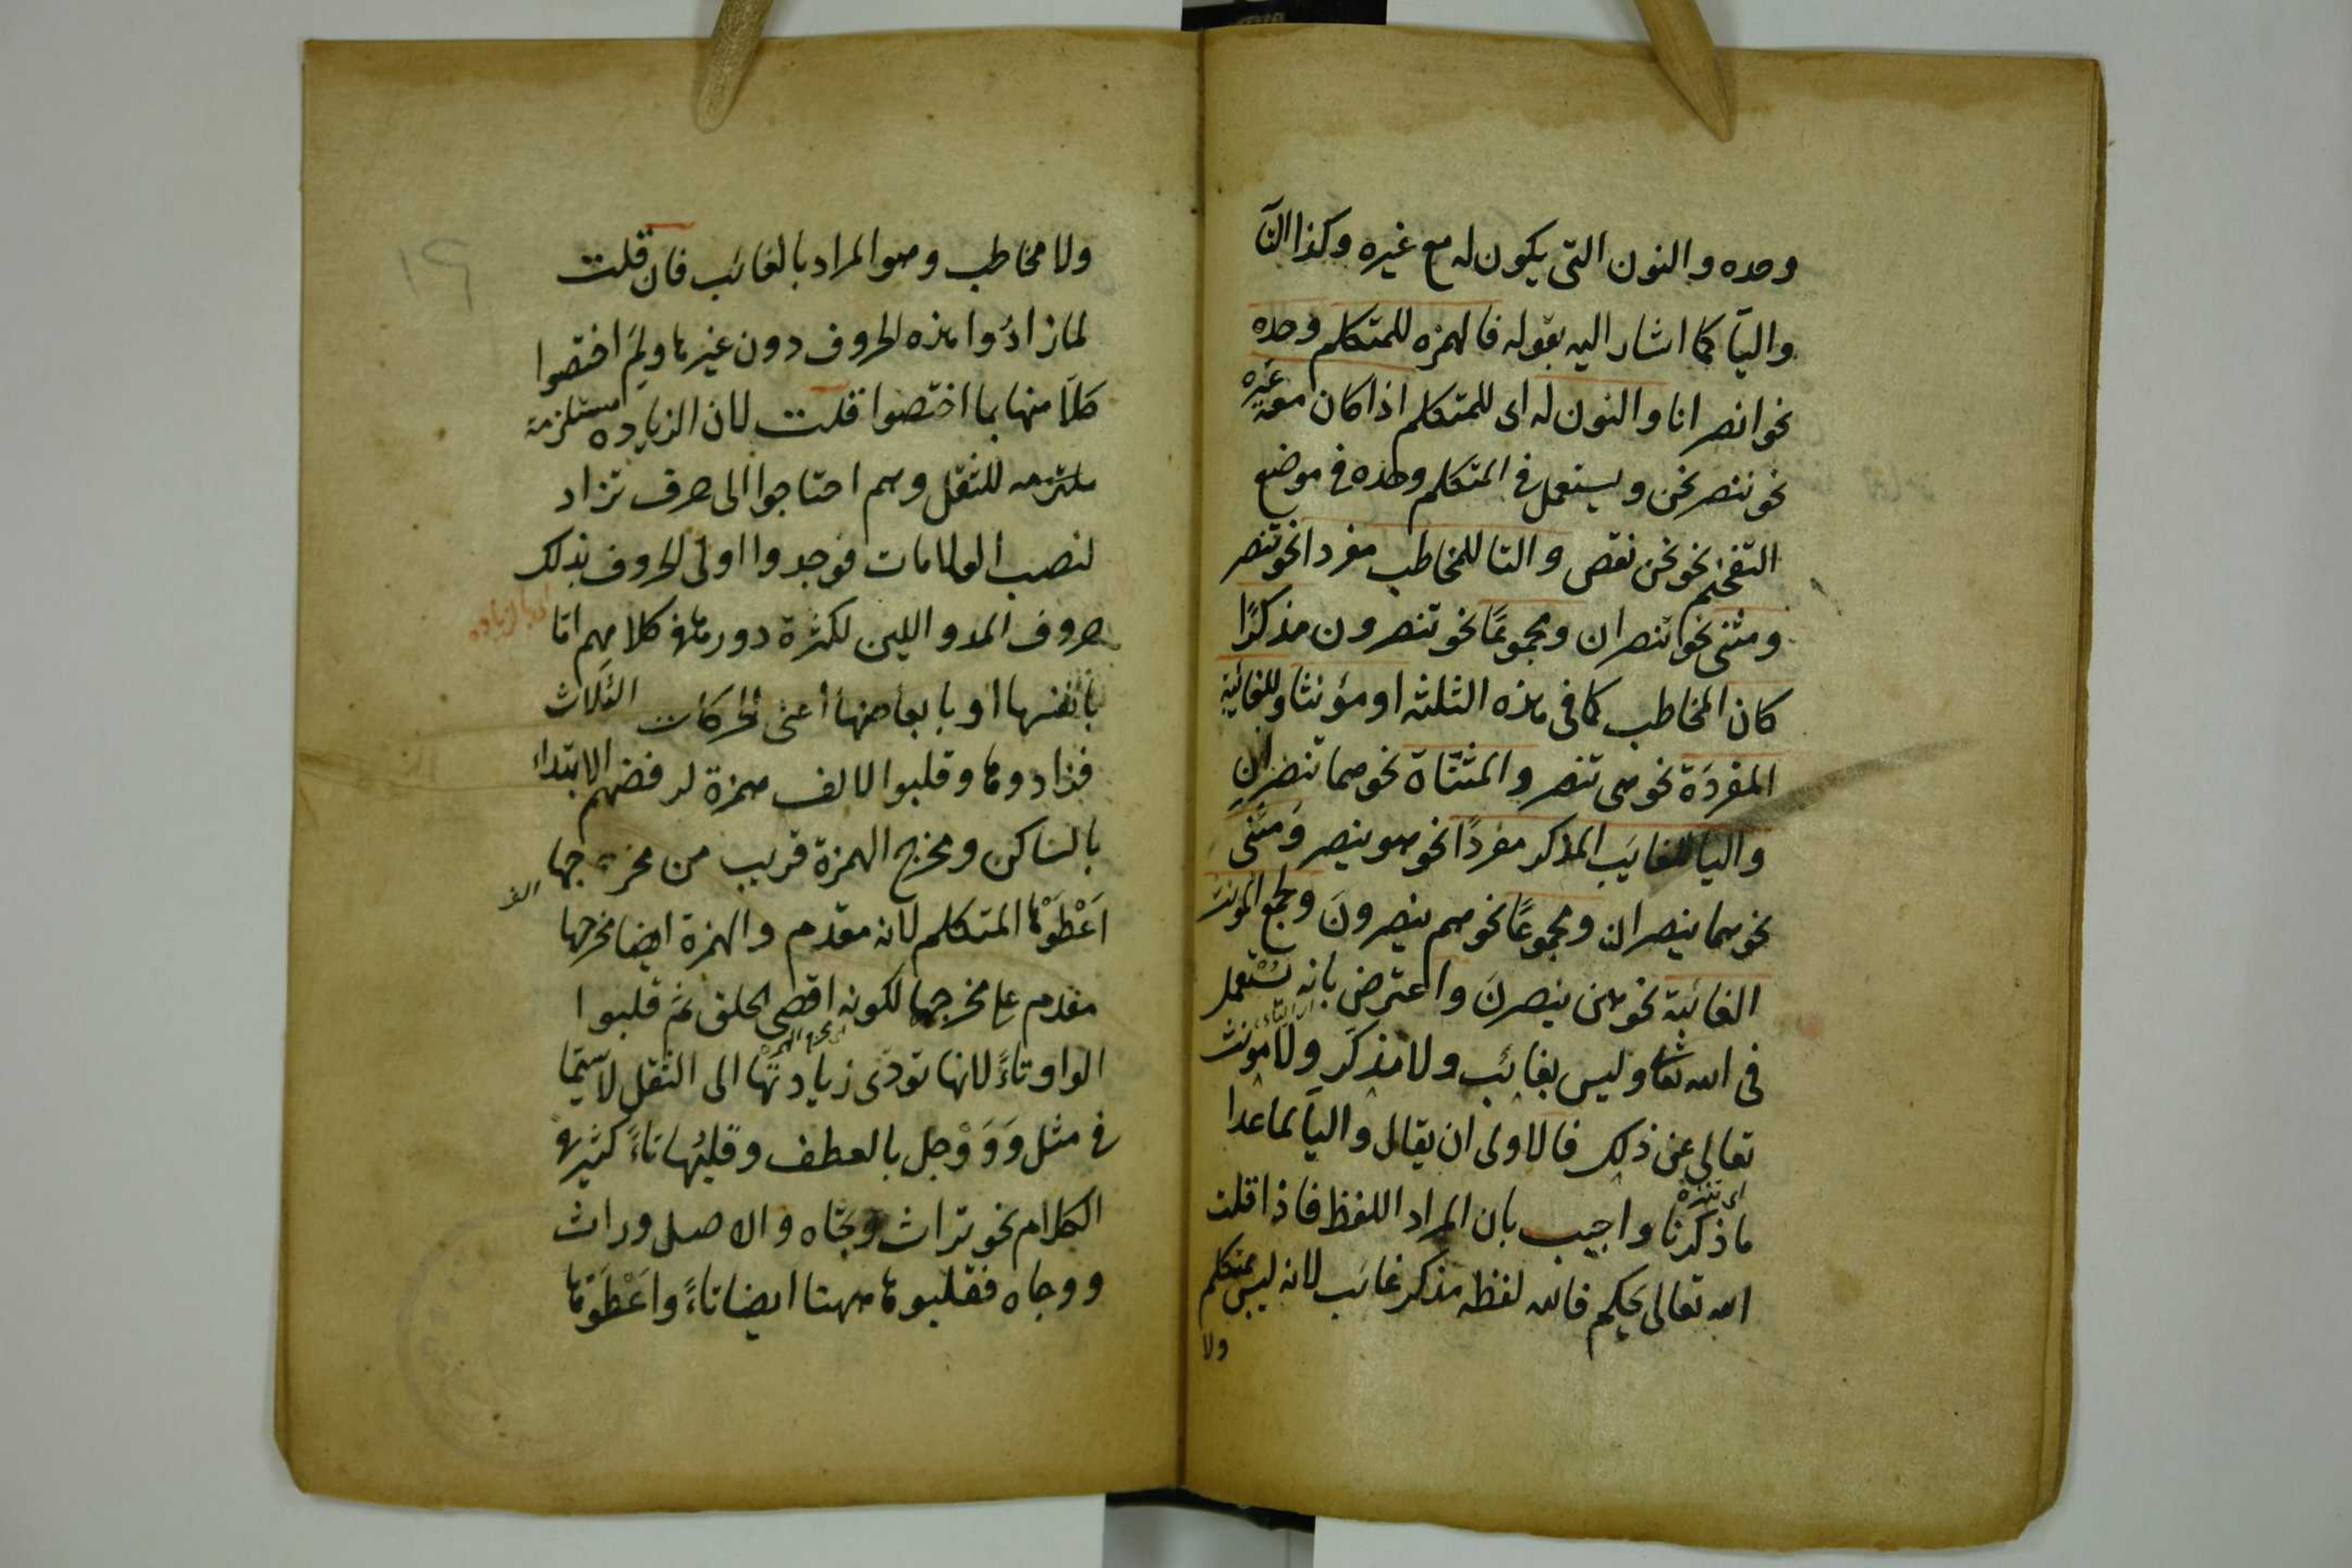 وحده والنون التى يكون له مع غيره وكذا التآ
واليآ كما اشار اليه بقوله فالهمزه للمتكلم وحده
نحو انصر انا والنون له اى للمتكلم اذا كان معه غيره
نحو ننصر نحن ويستعمل فى المتكلم وحده فى موضع
التفخيم نحو نحن نقص والتا للمخاطب مفردا نحو تنصر
ومثنى نحو تنصران ومجموعًا نحو تنصرون مذكرًا
كان المخاطب كما فى هذه الثلثه او مؤنثا وللغائبة
المفردَة نحو هى تنصر والمثنّاة نحو هما تنصرانِ
واليا للغائب المذكر مفردًا نحو هو ينصر وَمثنى
نحو هما ينصران ومجموعًا نحو هم ينصرونَ ولجمع المؤنث
الغائبة نحو هن ينصرنَ واعترض بانه يُسْتعمل
فى الله تعا وليس بغائب ولا مذكَر ولا مونث
تعالى عن ذلك فالاولى ان يقال واليآ لما عدا
اى تنزه
ما ذكرنا واجيب بان المراد اللفظ فاذا قلت
الله تعالى يحكم فالله لفظه مذكر غائب لانه ليس بمتكلم
ولا
ولا مخاطب وهو المراد بالغائب فان قلت
لما زادُوا هذه الحروف دون غيرها ولِمَ اختصوا
كلاً منها بما اختصوا قلت لان الزياده مستلزمة
ملتزمه للثقل وهم احتاجوا الى حرف تزاد
لنصب العلامات فوجدوا اولى الحروف بذلك
حروف المد واللين لكثرة دورها فى كلامهم اما
بانفسها او بابعاضها اعنى الحركات الثلاث
فزادوها وقلبوا الالف همزة لرفضهم الابتداء
بالساكن ومخرج الهمزة قريب من مخرجها
اَعْطَوْها المتكلم لانه مقدم والهمزة ايضا مخرجها
مقدم على مخرجها لكونه اقصى الحلق ثم قلبوا
الواو تاءً لانها تودى زيادتها الى الثقل لا سيما
فى مثل وَوَوْجل بالعطف وقلبُها تاءً كثير فى
الكلام نحو تراث وتجاه والاصل وراث
ووجاه فقلبوها ههنا ايضا تاءً واعْطَوْها
١٩